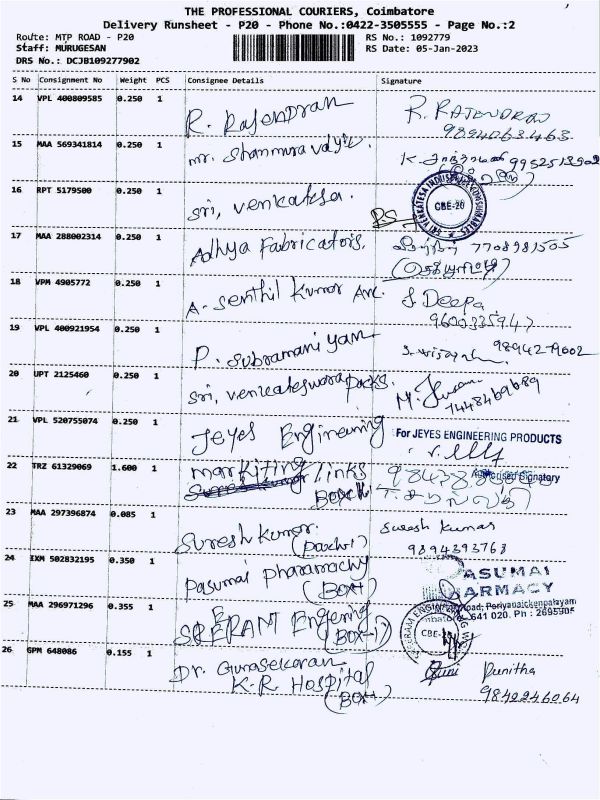 THE PROFESSIONAL COURIERS, Coimbatore
Delivery Runsheet - P20 - Phone No.:0422-3505555 - Page No.:2
Route: MTP ROAD - P20 RS No.: 1092779
Staff: MURUGESAN RS Date: 05-Jan-2023
DRS No.: DCJB109277902
S No Consignment No Weight PCS Consignee Details Signature
14 VPL 400809585 0.250 1 R. Rajendran R. RAJENDRAN
9894063463
15 MAA 569341814 0.250 1 mr. Shanmuravalyir.
16 RPT 5179500 0.250 1 Sri, venkatesa. CBE-20
17 MAA 288002314 0.250 1 Adhya Fabricators. 7708981505
18 VPM 4905772 0.250 1 A. Senthil Kumar S. Deepa
9600335947
19 VPL 400921954 0.250 1 P. Subramaniyam
20 UPT 2125460 0.250 1 Sri, venkateswara packs. M.
7448469689
21 VPL 520755074 0.250 1 Jeyes Engineering For JEYES ENGINEERING PRODUCTS
Authorised Signatory
22 TRZ 61329069 1.600 1 markiting links
Box
23 MAA 297396874 0.085 1 Suresh Kumar. Suresh Kumar
9894393763
24 EXM 502832195 0.350 1 Pasumai pharamachy PASUMAI
(Box1) PHARMACY
Road, Periyanaickenpalayam
641 020. Ph : 2695906
25 MAA 296971296 0.355 1 SREERAM Engering
(Box-1) CBE-20
26 GPM 648086 0.155 1 Dr. Gunasekaran Punitha
K.R Hospital 9842246064
(Box1)